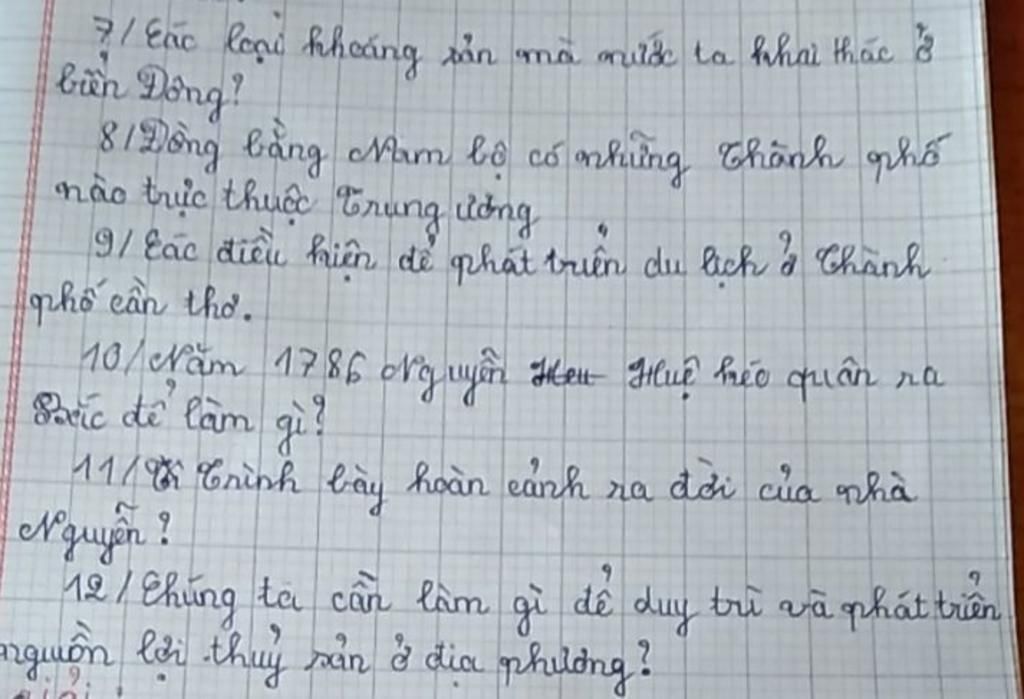 7/ Các loại khoáng sản mà nước ta khai thác ở
biển Đông?
8/ Đồng bằng Nam bộ có những Thành phố
nào trực thuộc Trung ương
9/ Các điều kiện để phát triển du lịch ở Thành
phố cần thơ.
10/ Năm 1786 Nguyễn Huệ kéo quân ra
Bắc để làm gì?
11/ Trình bày hoàn cảnh ra đời của nhà
Nguyễn?
12/ Chúng ta cần làm gì để duy trì và phát triển
nguồn lợi thuỷ sản ở địa phương?